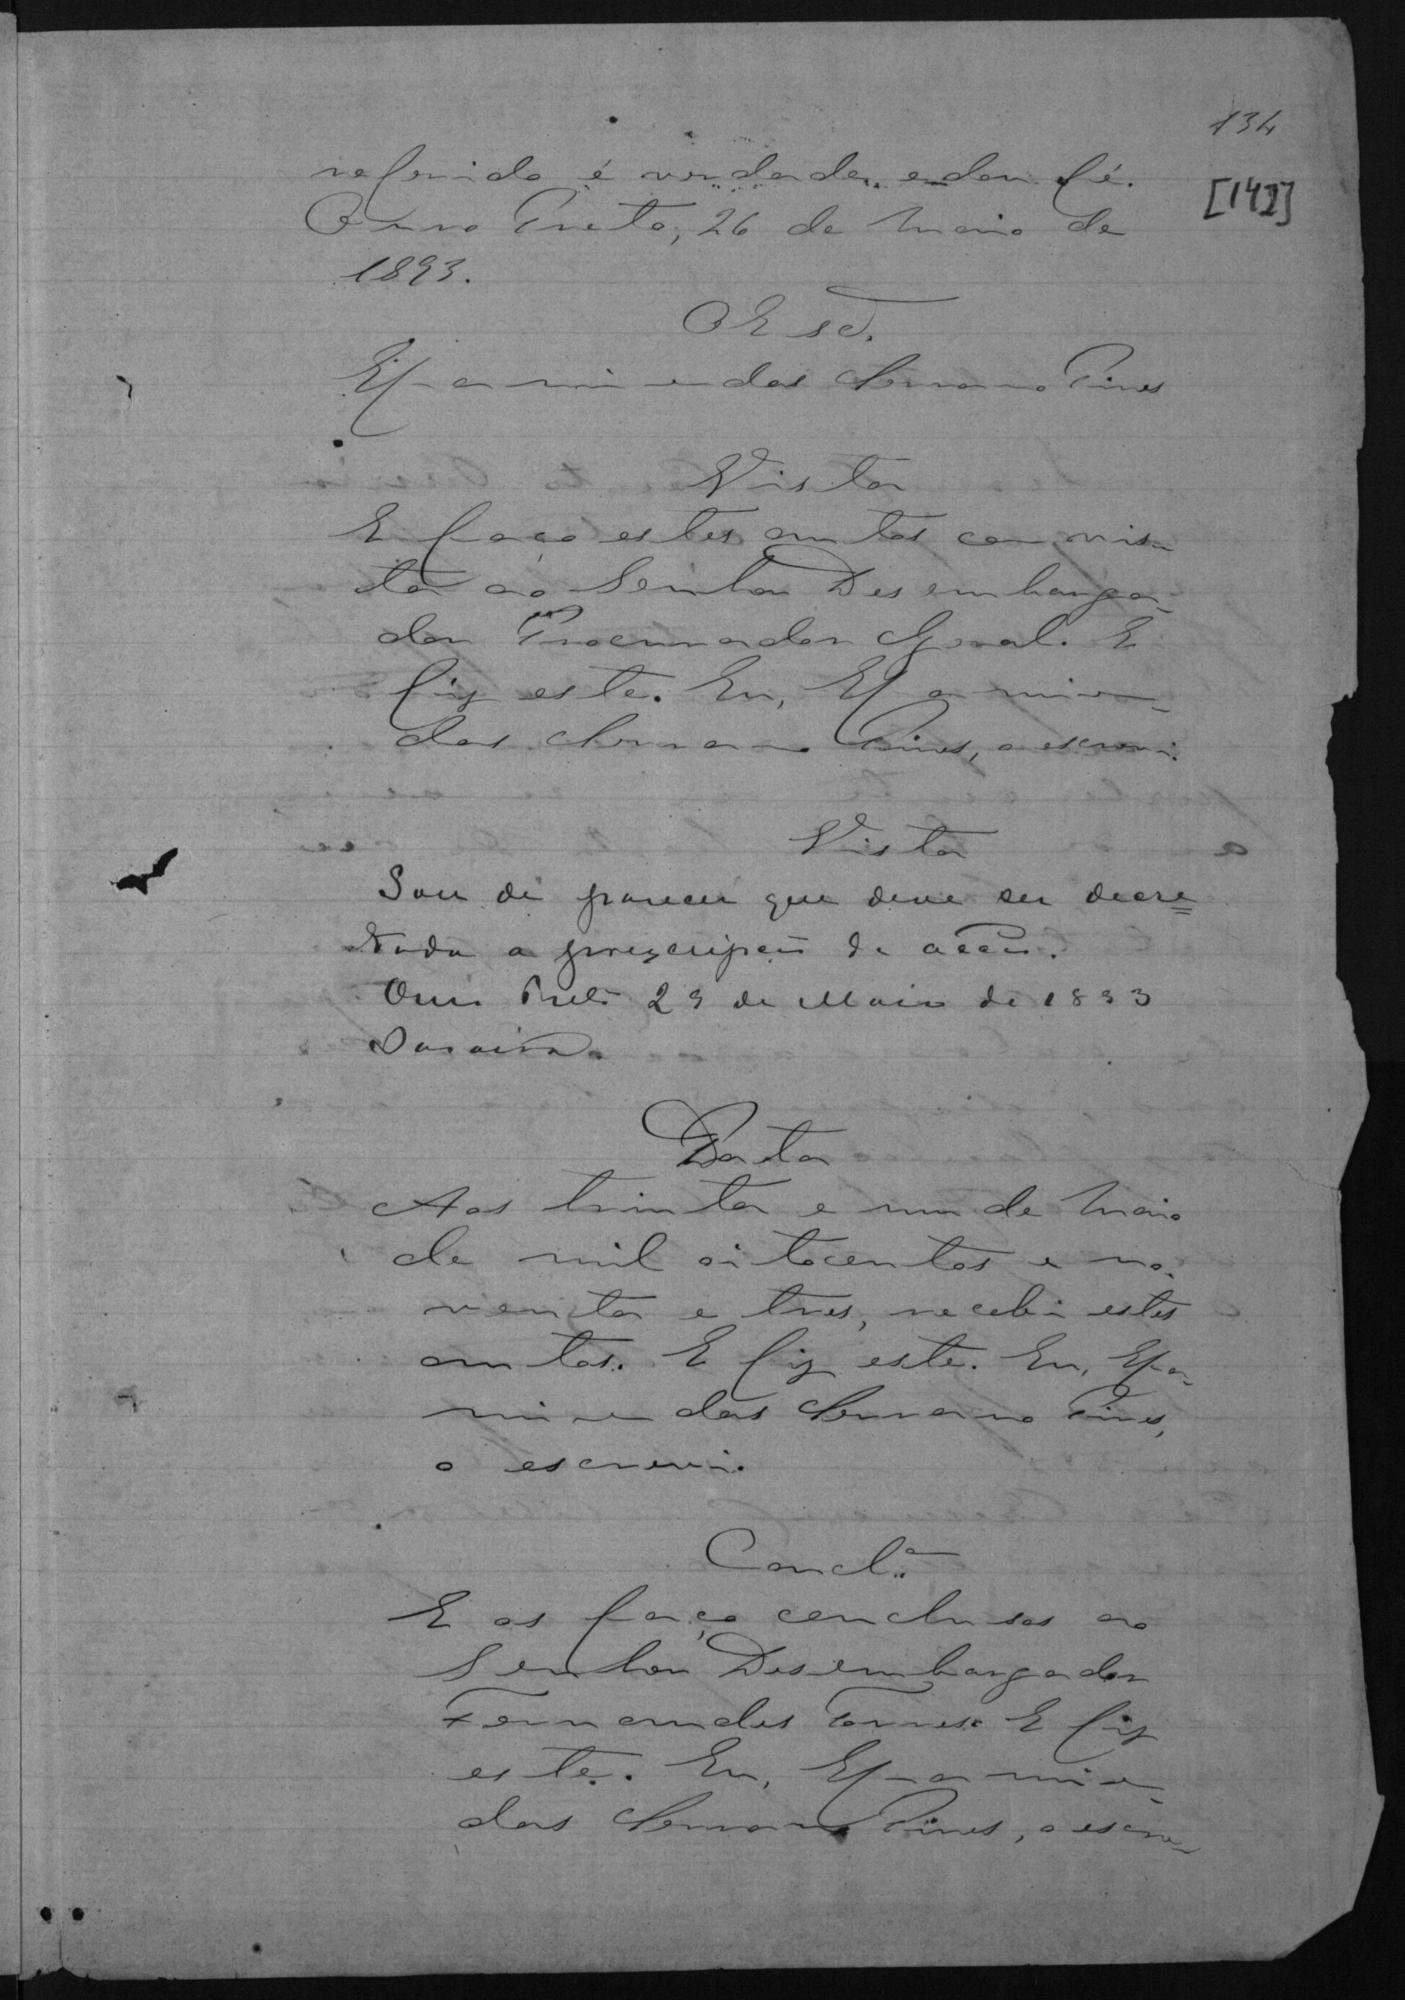 134
[142]
referido é verdade, e dou fé.
Ouro Preto, 26 de Maio de
1893.
O Escr.
Epaminondas Serrano Pires
Vista
E faço estes autos com vis-
ta ao Senhor Desembarga-
dor Procurador Geral. E
fiz este. Eu, Epaminon-
das Serrano Pires, o escrevi.
Vista
Sou de parecer que deve ser decre=
tada a prescripção da acção.
Ouro Preto 29 de Maio de 1893
Saraiva.
Data
Aos trinta e um de Maio
de mil oitocentos e no-
venta e tres, recebi estes
autos. E fiz este. Eu, Epa-
minondas Serrano Pires,
o escrevi.
Concl.ª
E os faço conclusos ao
Senhor Desembargador
Fernandes Torres. E fiz
este. Eu, Epaminon-
das Serrano Pires, o escre-